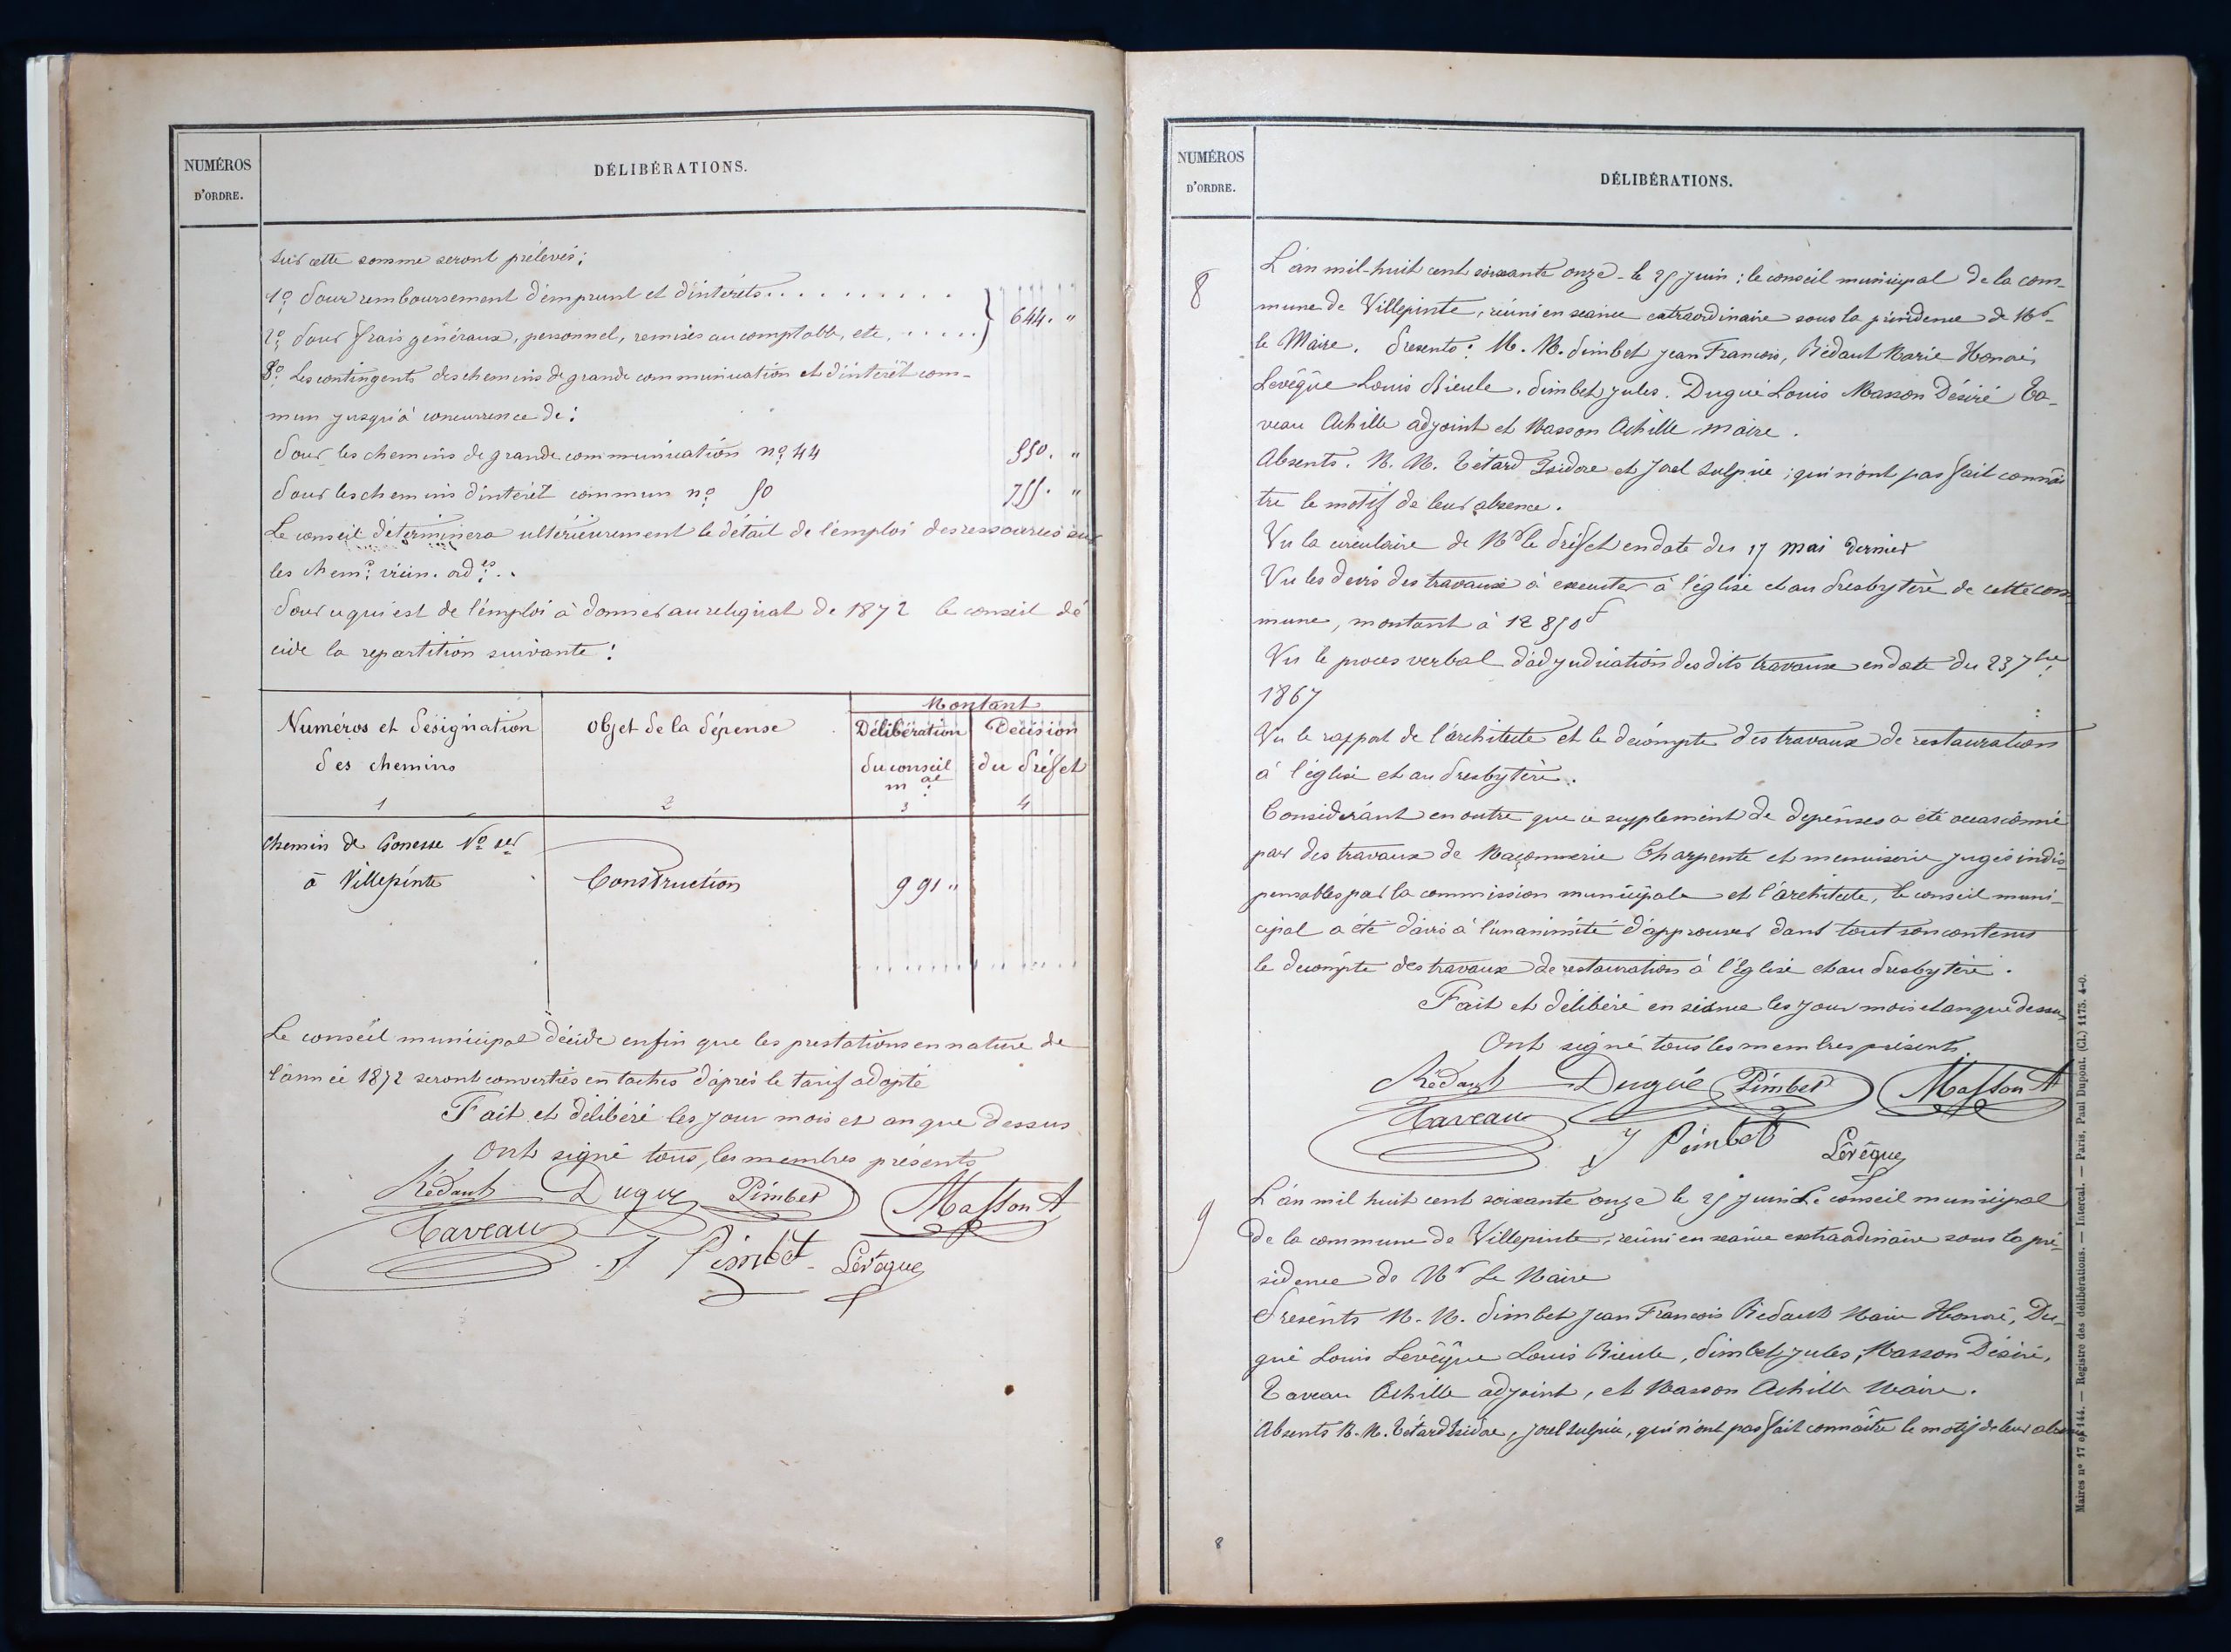 NUMÉROS
D'ORDRE.
DÉLIBÉRATIONS.
Sur cette somme seront prélevés:
1º Pour remboursement d'emprunt et d'intérêts..........
2º Pour frais généraux, personnel, remises au comptable, etc. ..... } 644. "
3º Les contingents des chemins de grande communication et d'intérêt com-
mun jusqu'à concurrence de:
Pour les chemins de grande communication nº 44 550. "
Pour les chemins d'intérêt commun nº 50 755. "
Le conseil déterminera ultérieurement le détail de l'emploi des ressources sur
les chem.s vicin. ord.es.
Pour ce qui est de l'emploi à donner au reliquat de 1872 le conseil dé
cide la repartition suivante:
Numéros et désignation
des chemins
1
Objet de la dépense
2
Montant
Délibération
du conseil
m.al
3
Décision
du Préfet
4
Chemin de Gonesse Nº 1er
à Villepinte
Construction
991 "
Le conseil municipal décide enfin que les prestations en nature de
l'année 1872 seront converties en taches d'après le tarif adopté
Fait et délibéré les jour mois et an que dessus
Ont signé tous les membres présents
Rédault Dugué Pimbet Masson A
Taveau J Pimbet Lévêque
NUMÉROS
D'ORDRE.
DÉLIBÉRATIONS.
8
L'an mil-huit cent soixante onze - le 25 Juin: le conseil municipal de la com-
mune de Villepinte, réuni en seance extraordinaire sous la présidence de Mr
le Maire. Presents: M. M. Pimbet Jean François, Rédaut Marie Honoré,
Levêque Louis Pimbet Jules. Dugué Louis Masson Désiré Ta-
veau Achille adjoint et Masson Achille maire.
Absents. M. M. Tétard Isidore et Joel Sulpice; qui n'ont pas fait connaî
tre le motif de leur absence.
Vu la circulaire de Mr le Préfet en date du 17 mai dernier
Vu les devis des travaux à executer à l'église et au Presbytère de cette com
mune, montant à 12850f
Vu le proces verbal d'adjudication des dits travaux en date du 23 7bre
1867
Vu le rapport de l'architecte et le décompte des travaux de restauration
à l'église et au Presbytère.
Considérant en outre que ce supplement de dépenses a été occasionné
par des travaux de Maçonnerie Charpente et menuiserie jugés indis-
pensables par la commission municipale et l'architecte, le conseil muni-
cipal a été d'avis à l'unanimité d'approuver dans tout son contenu
le decompte des travaux de restauration à l'Eglise et au Presbytère.
Fait et délibéré en séance les jour mois et an que dessus
Ont signé tous les membres présents
Rédault Dugué Pimbet Masson A
Taveau J Pimbet Lévêque
9
L'an mil huit cent soixante onze le 25 juin Le conseil municipal
de la commune de Villepinte, réuni en séance extraordinaire sous la pré-
sidence de Mr Le Maire
Presents M. M. Pimbet Jean François Redault Marie Honoré, Du-
gué Louis Levêque Louis Pimbet Jules, Masson Désiré,
Taveau Achille adjoint, et Masson Achille Maire.
Absents M. M. Tétard Isidore, Joel Sulpice, qui n'ont pas fait connaître le motif de leur absence
8
Maires nº 17 et 144. — Registre des délibérations. — Intercal. — Paris, Paul Dupont. (Cl.) 1175. 4-0.